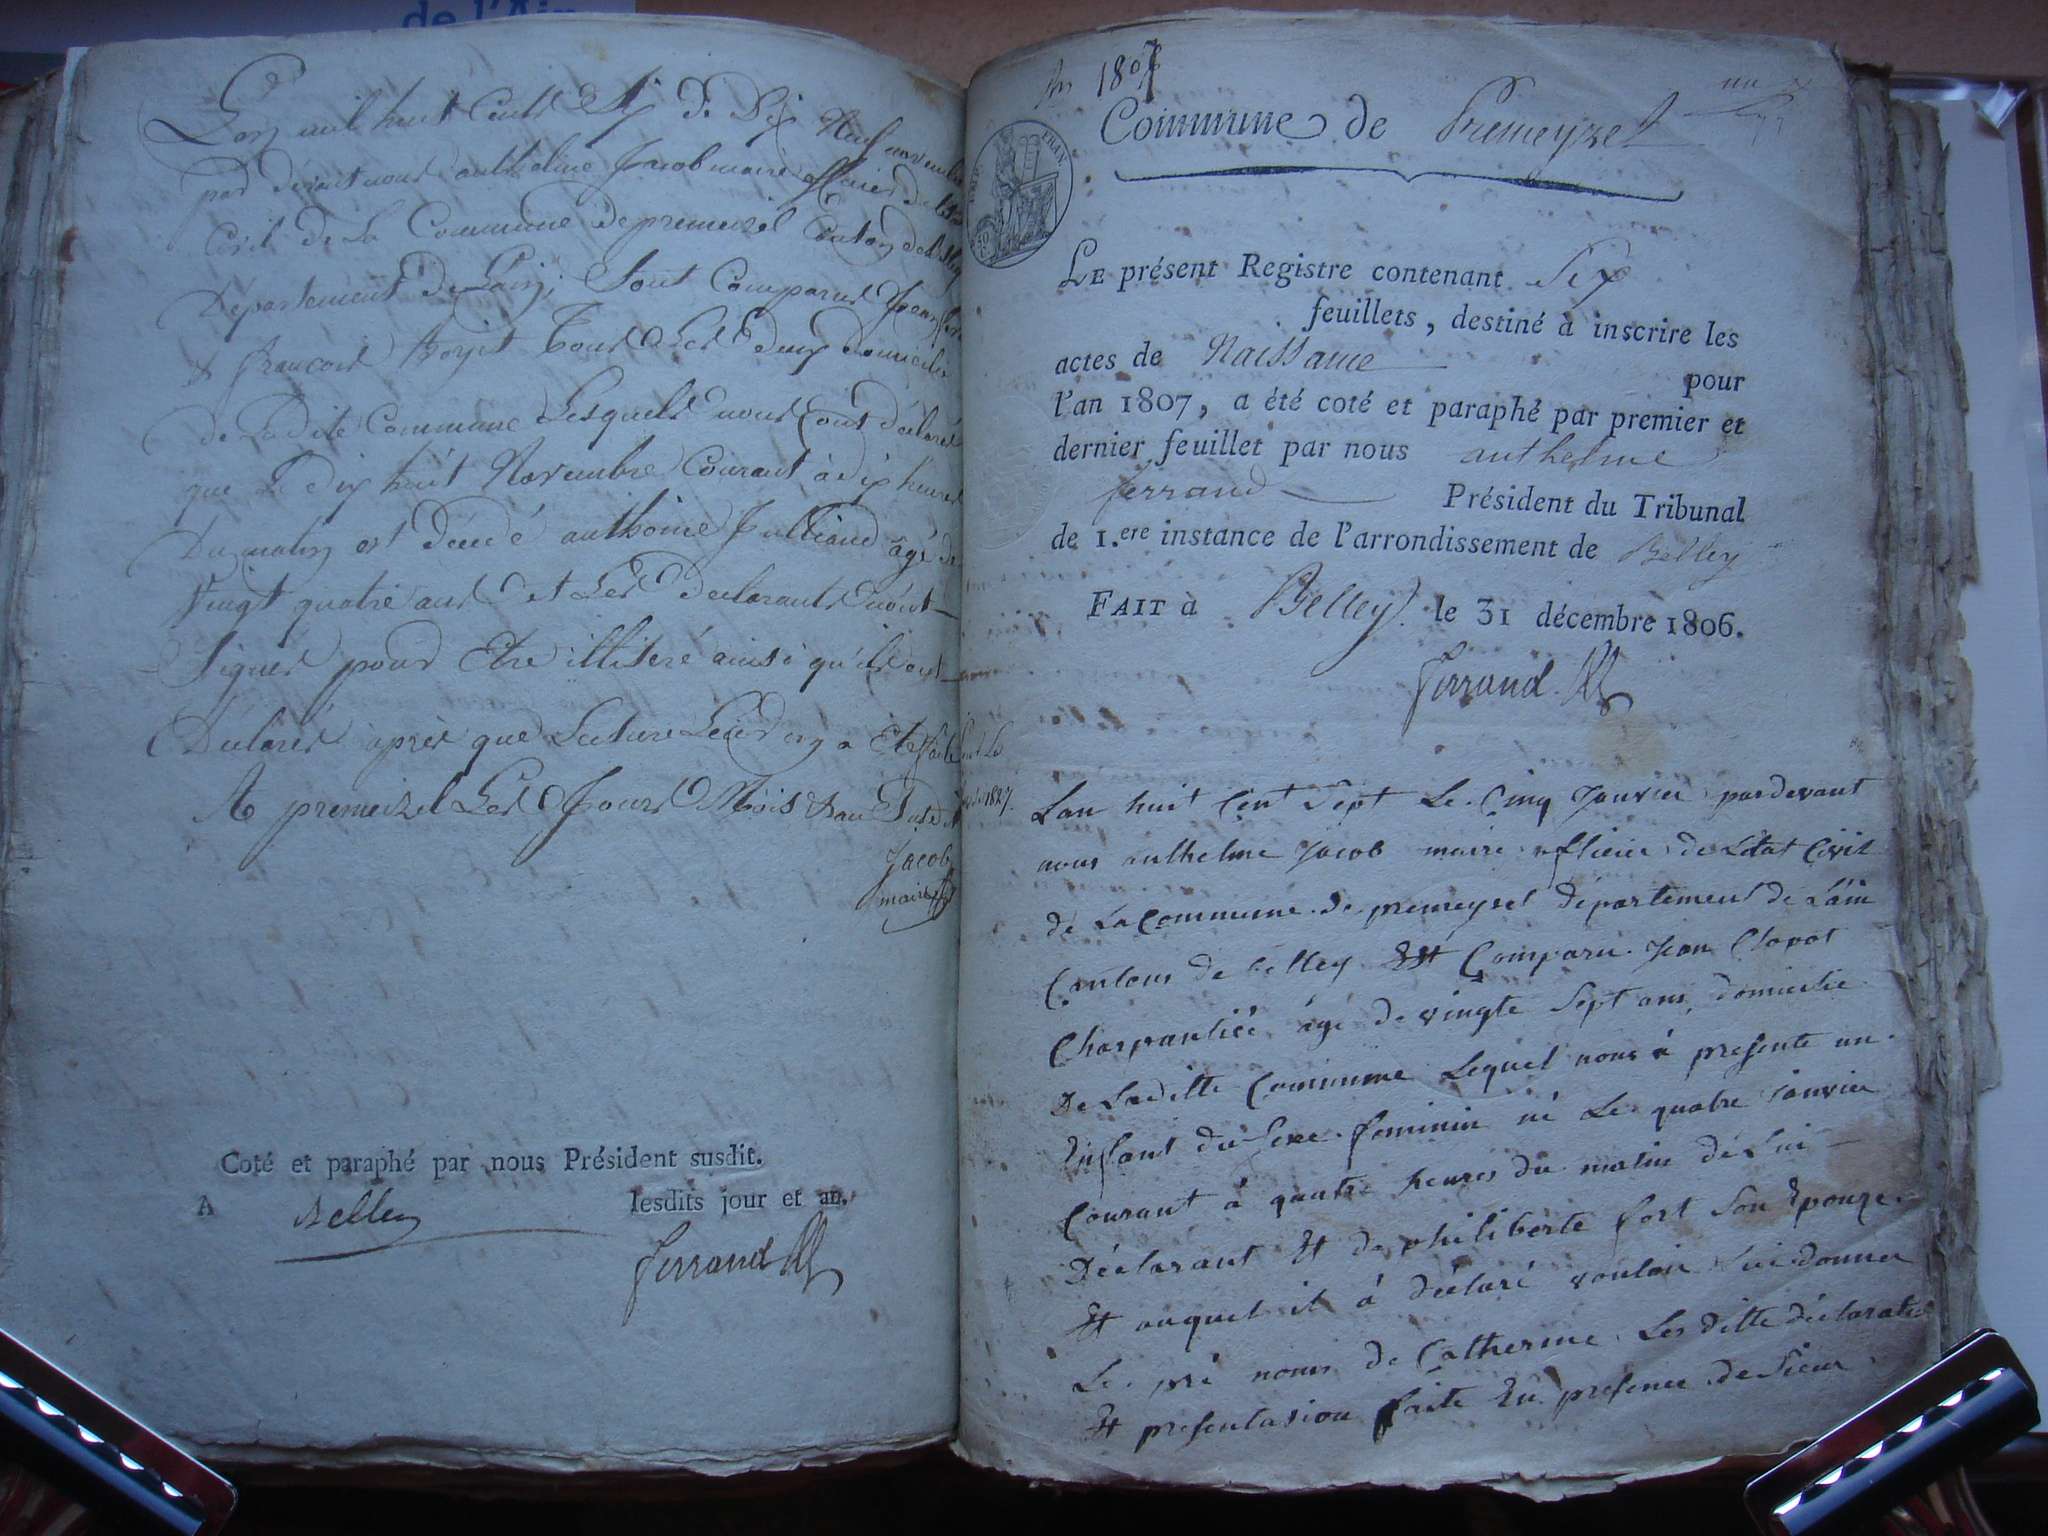 de l'Ain
Lan mil huit Cents Six Le Dix Neuf novembre
par devant nous anthelme Jacob maire officier de
Civil de La Commune de premeizel Canton de Belley
Departement De Lain, Sont Comparus Jean
& françois Tous Les Deux Domicilies
de Ladite Commune Lesquels nous Ont déclarés
que Le dix huit Novembre Courant à dix heures
Du matin est Décédé anthoine Julliand agé de
Vingt quatre ans et Les declarants n'ont
Signés pour Etre illiteré ainsi qu'ils ont
Déclarés après que Lecture Leurs en a Eté faite
A premeizel Les Jours Mois & an Susdit
Jacob
maire
Coté et paraphé par nous Président susdit.
A Belley lesdits jour et an.
Ferrand
An 1807
un
Commune de Premeyzel
LE présent Registre contenant Six
feuillets, destiné à inscrire les
actes de Naissance pour
l'an 1807, a été coté et paraphé par premier et
dernier feuillet par nous anthelme
ferrand Président du Tribunal
de 1.ere instance de l'arrondissement de Belley
FAIT à Belley. le 31 décembre 1806.
Ferrand
Lan huit Cent Sept Le Cinq Janvier pardevant
nous anthelme Jacob maire officier de Létat Civil
de La Commune de premeysel département de Lain
Cantons de belley Est Comparu Jean Clapot
Charpantié âgé de vingte Sept ans domicilie
De Laditte Commune Lequel nous à presente un
Enfant du Sexe feminin né Le quatre Janvier
Courant à quatre heures du matin dé Lui
Déclarant Et de philiberte fort Son Epouze
Et auquel il à déclaré vouloir Lui donner
Le pré noms de Catherine Les ditte déclaration
Et presentation faite En presence de Sieur